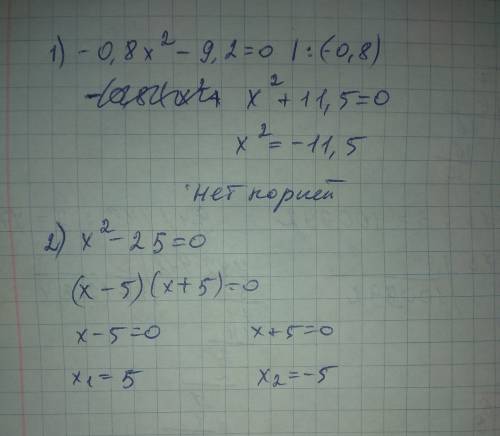 1) -0,8x² - 9,2=0 | :(-0,8)
x² + 11,5=0
x² = -11,5
нет корней
2) x² - 25=0
(x-5)(x+5)=0
x-5=0 x+5=0
x₁=5 x₂=-5